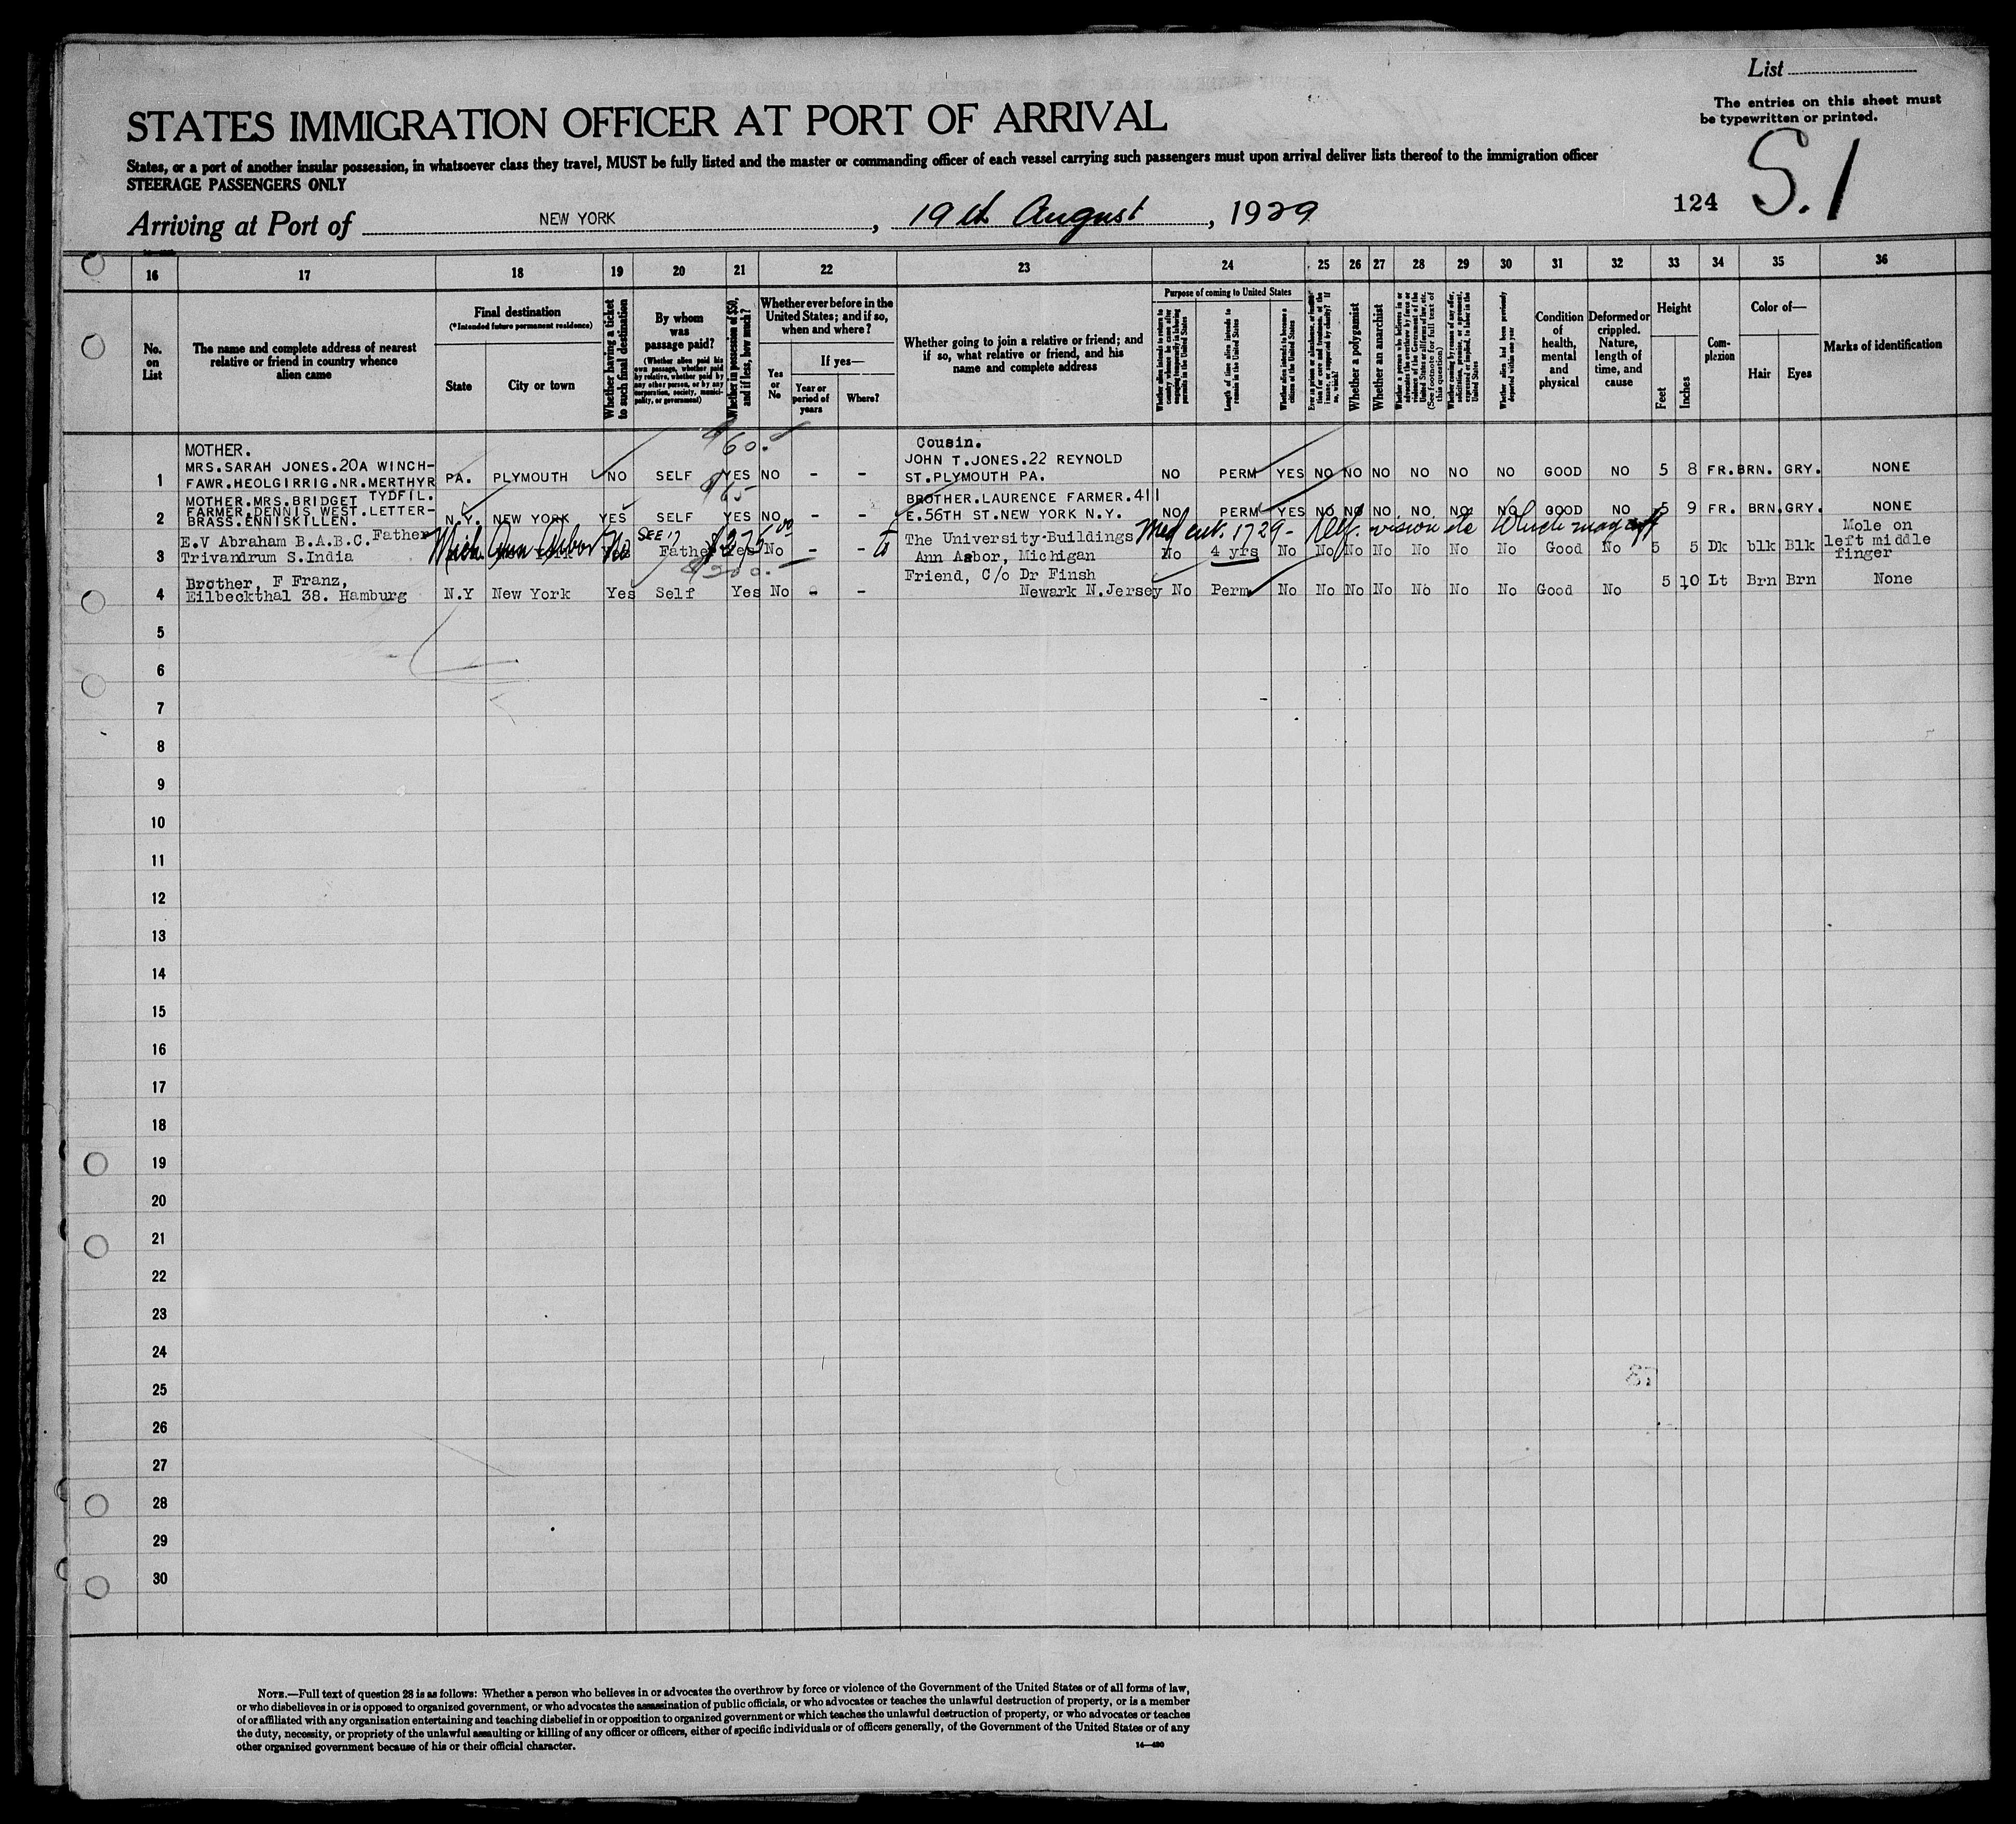 List
The entries on this sheet must
be typewritten or printed.
STATES IMMIGRATION OFFICER AT PORT OF ARRIVAL
States, or a port of another insular possession, in whatsoever class they travel, MUST be fully listed and the master or commanding officer of each vessel carrying such passengers must upon arrival deliver lists thereof to the immigration officer
STEERAGE PASSENGERS ONLY
124 S.1
Arriving at Port of NEW YORK, 19th August, 1929
16 17 18 19 20 21 22 23 24 25 26 27 28 29 30 31 32 33 34 35 36
No. on List
The name and complete address of nearest relative or friend in country whence alien came
Final destination
(*Intended future permanent residence)
State
City or town
Whether having a ticket to such final destination
By whom was passage paid?
(Whether alien paid his own passage, whether paid by relative, whether paid by any other person, or by any corporation, society, municipality, or government)
Whether in possession of $50, and if less, how much?
Whether ever before in the United States; and if so, when and where?
Yes or No
If yes—
Year or period of years
Where?
Whether going to join a relative or friend; and if so, what relative or friend, and his name and complete address
Purpose of coming to United States
Length of time alien intends to remain in the United States
Whether alien intends to become a citizen of the United States
Whether a polygamist
Whether an anarchist
Whether alien had been previously deported within one year
Condition of health, mental and physical
Deformed or crippled. Nature, length of time, and cause
Height
Feet
Inches
Complexion
Color of—
Hair
Eyes
Marks of identification
$60.
MOTHER.
MRS.SARAH JONES.20A WINCH-
Cousin.
JOHN T.JONES.22 REYNOLD
1 FAWR.HEOLGIRRIG.NR.MERTHYR PA. PLYMOUTH NO SELF YES NO - - ST.PLYMOUTH PA. NO PERM YES NO NO NO NO NO NO GOOD NO 5 8 FR. BRN. GRY. NONE
TYDFIL.
$65
MOTHER.MRS.BRIDGET
FARMER.DENNIS WEST.LETTER-
BROTHER.LAURENCE FARMER.411
2 BRASS.ENNISKILLEN. N.Y. NEW YORK YES SELF YES NO - - E.56TH ST.NEW YORK N.Y. NO PERM YES NO NO NO NO NO NO GOOD NO 5 9 FR. BRN. GRY. NONE
Father
E.V Abraham B.A.B.C.
SEE 17
$275 00
The University-Buildings
Mole on
left middle
finger
3 Trivandrum S.India Mich. Ann Arbor No Father Yes No - - to Ann Aabor, Michigan No 4 yrs No No No No No No No Good No 5 5 Dk blk Blk
Brother, F Franz,
$200.
Friend, C/o Dr Finsh
4 Eilbeckthal 38. Hamburg N.Y New York Yes Self Yes No - - Newark N.Jersey No Perm No No No No No No No Good No 5 10 Lt Brn Brn None
5
6
7
8
9
10
11
12
13
14
15
16
17
18
19
20
21
22
23
24
25
26
27
28
29
30
NOTE.—Full text of question 28 is as follows: Whether a person who believes in or advocates the overthrow by force or violence of the Government of the United States or of all forms of law,
or who disbelieves in or is opposed to organized government, or who advocates the assassination of public officials, or who advocates or teaches the unlawful destruction of property, or is a member
of or affiliated with any organization entertaining and teaching disbelief in or opposition to organized government or which teaches the unlawful destruction of property, or who advocates or teaches
the duty, necessity, or propriety of the unlawful assaulting or killing of any officer or officers, either of specific individuals or of officers generally, of the Government of the United States or of any
other organized government because of his or their official character.
14—480